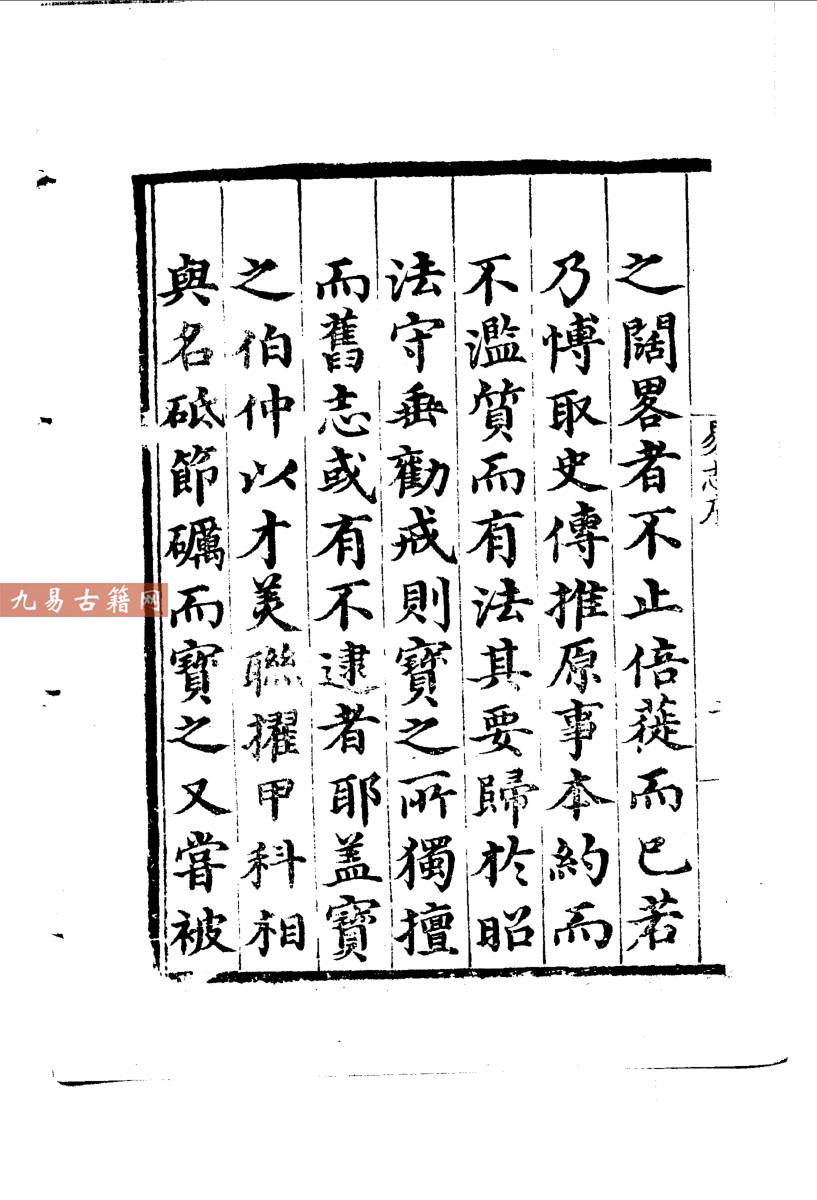 之闊畧者不止倍蓰而已若
乃博取史傳推原事本約而
不濫質而有法其要歸於昭
法守垂勸戒則寶之所獨擅
而舊志或有不逮者耶盖寶
之伯仲以才美聯擢甲科相
與名砥節礪而寶之又嘗被
九易古籍网